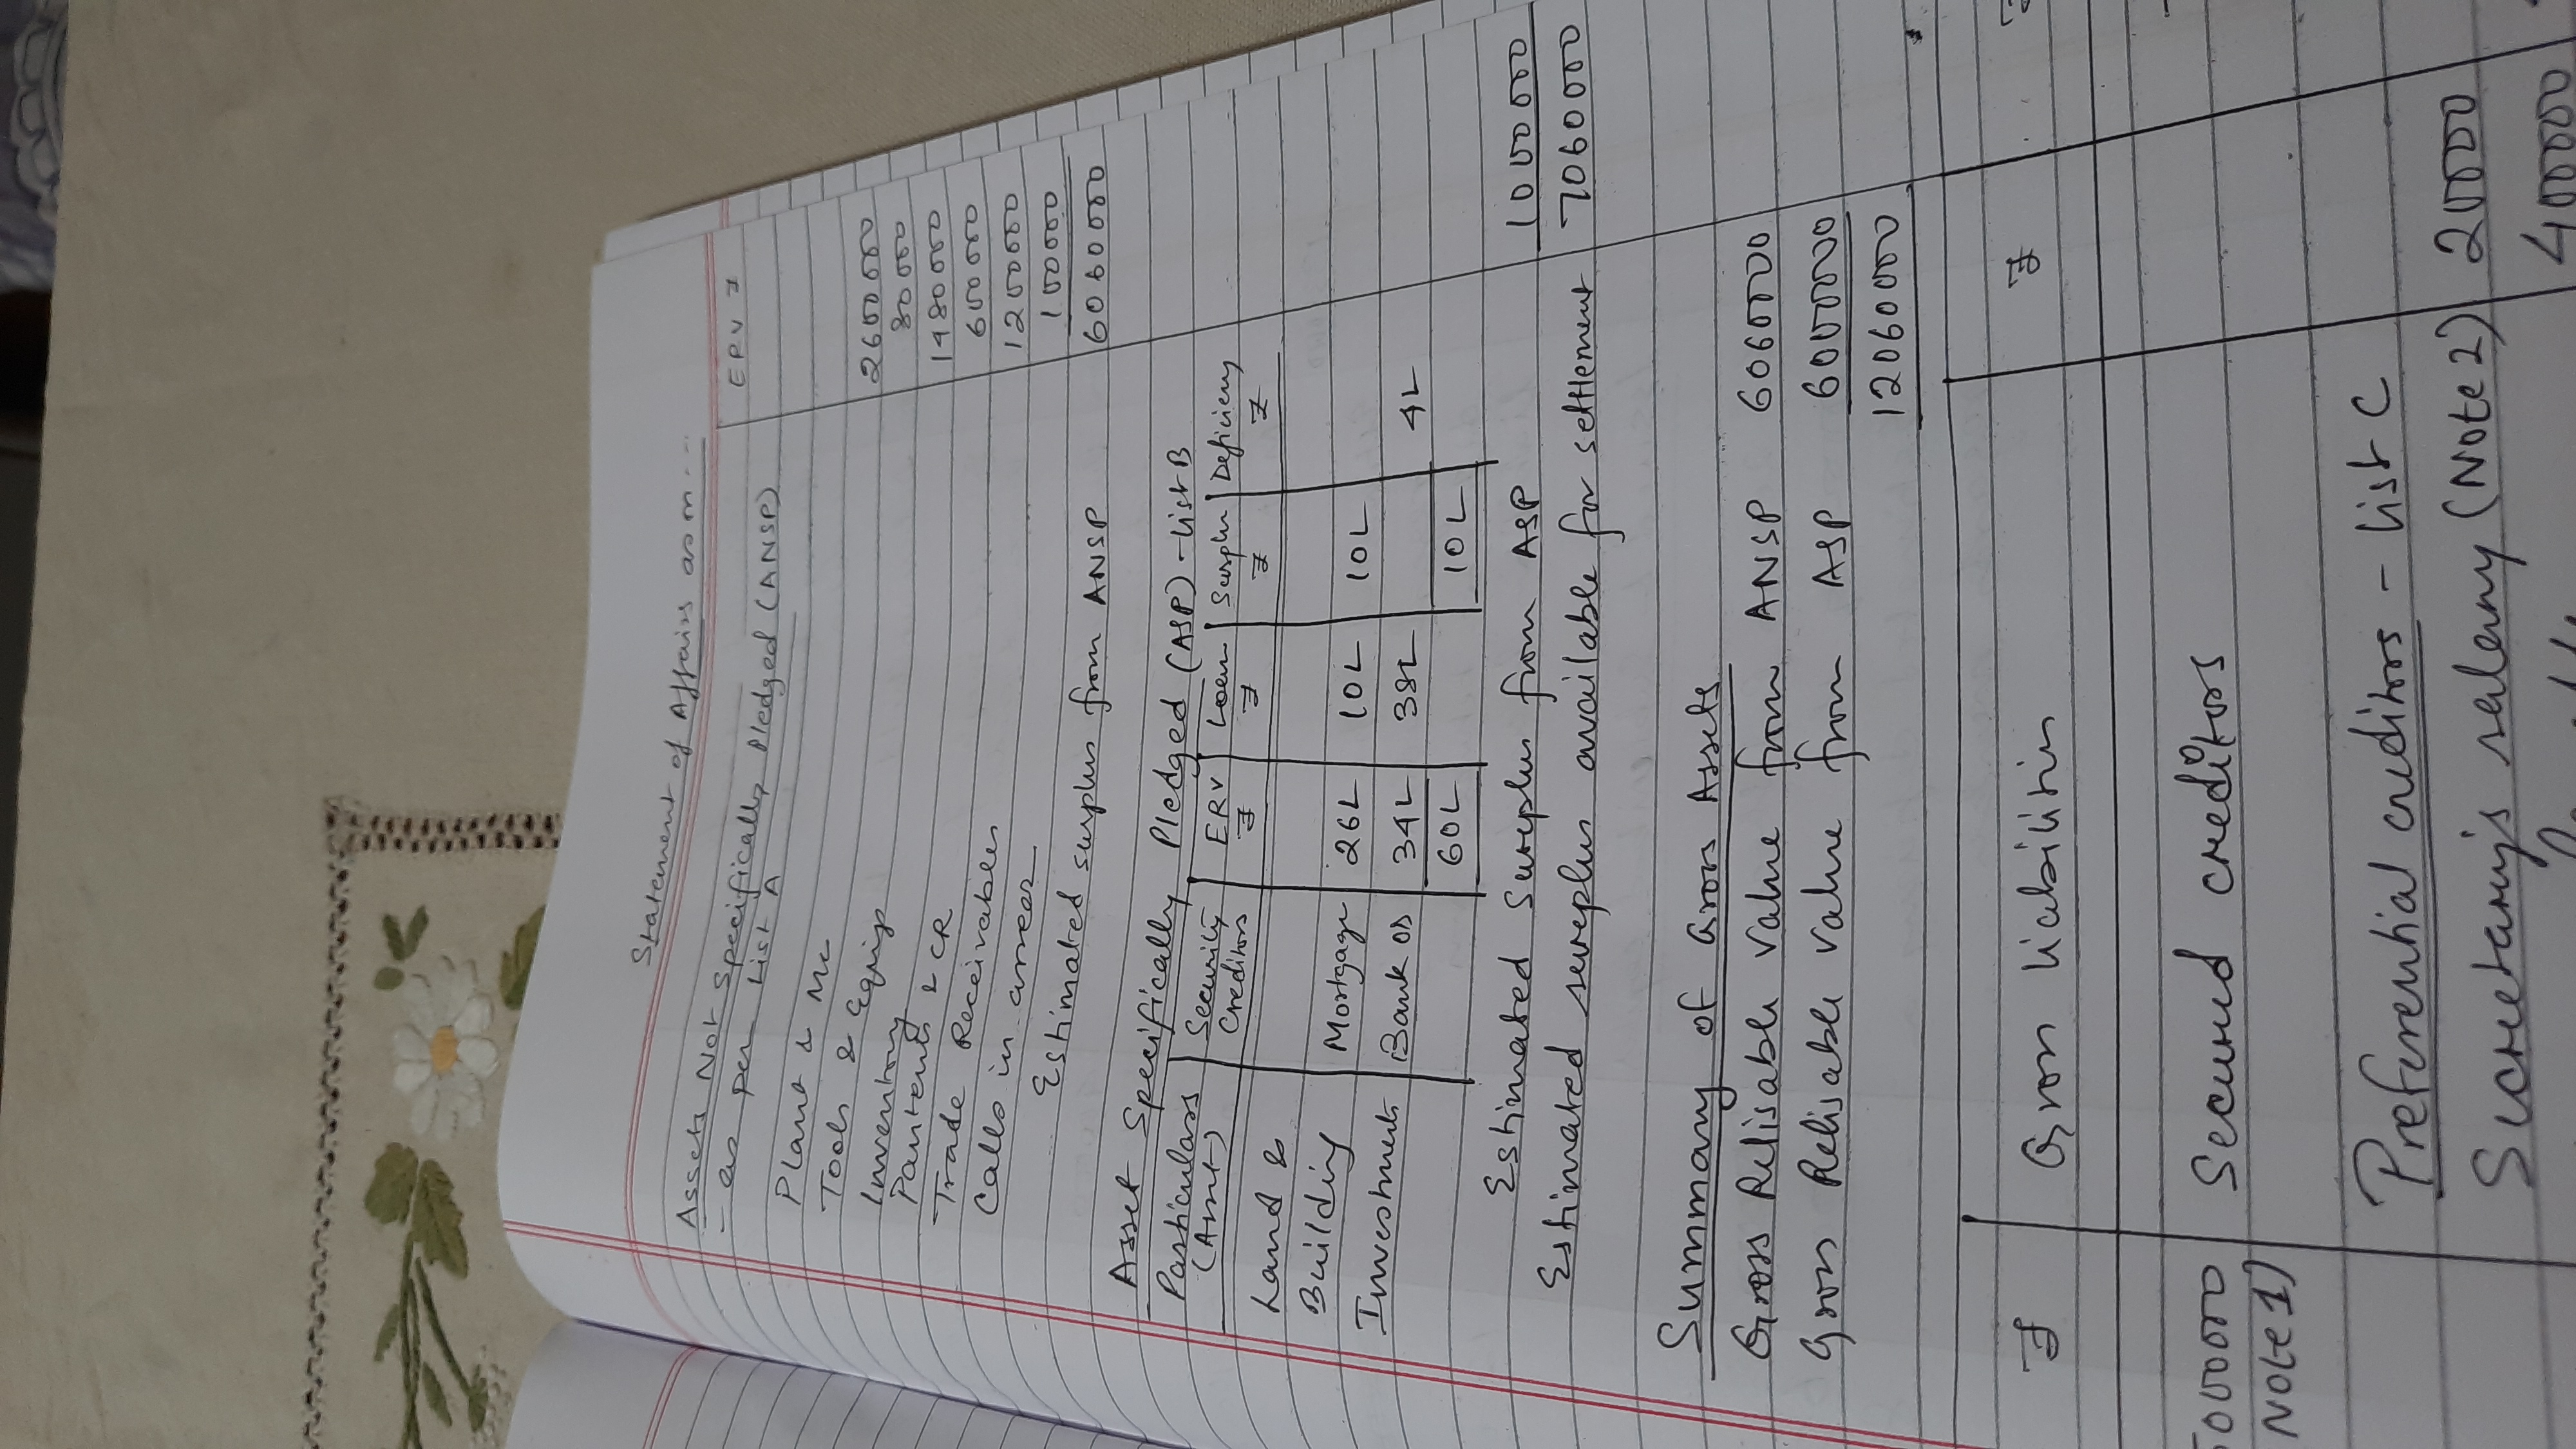 Statement of Affairs as on...
ERV ₹
Assets Not Specifically Pledged (ANSP)
- as per List A
Plant & Mc 2600000
Tools & Equip 80000
Inventory 1480000
Patents & CR 600000
Trade Receivables 1200000
Calls in arrear 100000
Estimated surplus from ANSP 6060000
Asset Specifically Pledged (ASP) - List B
Particulars (Amt) Security Creditors ERV ₹ Loan ₹ Surplus ₹ Deficiency ₹
Land &
Building Mortgage 26L 10L 10L
Investments Bank OD 34L 38L 4L
60L 10L
Estimated Surplus from ASP 1000000
Estimated surplus available for settlement 7060000
Summary of Gross Assets
Gross Relisable Value from ANSP 6060000
Gross Relisable Value from ASP 6000000
12060000
₹ Gross Liabilities ₹
00000 Secured creditors
Note 1)
Preferential creditors - List C
Secretary's salary (Note 2) 20000
400000